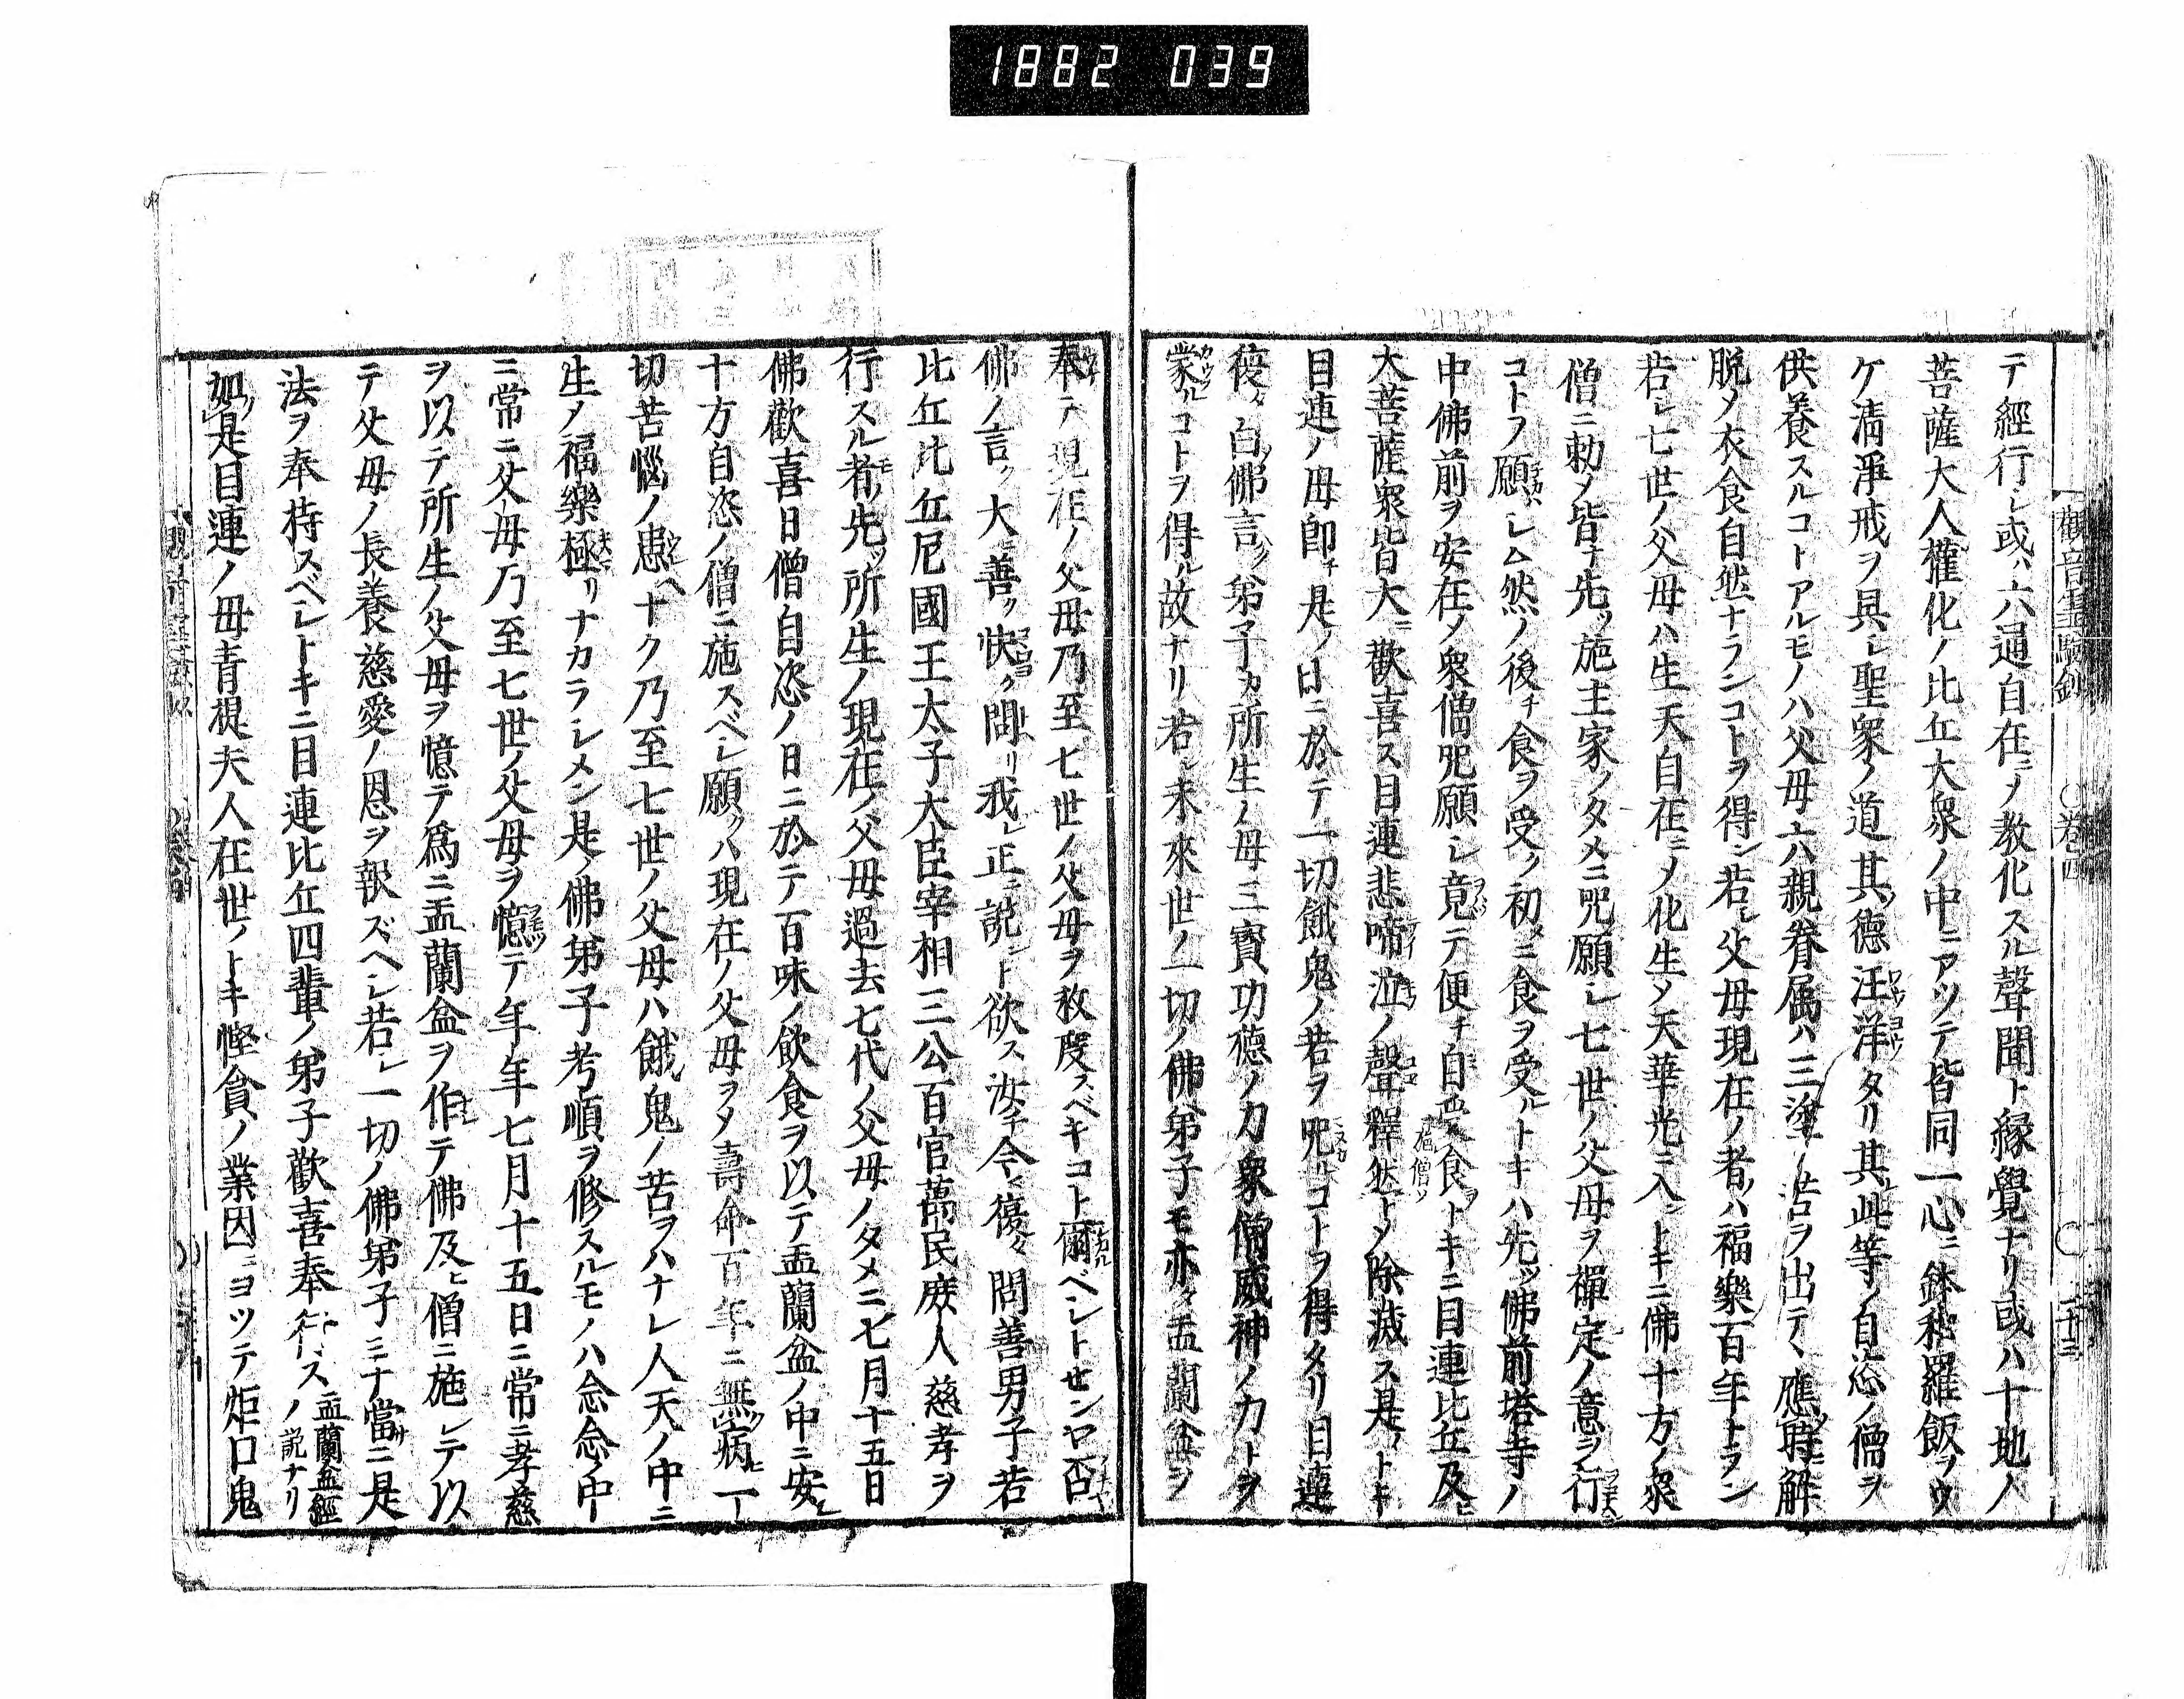 1882 039
觀音靈驗鈔 ○卷四 ○ 二十三
テ經行シ或ハ六通自在ニメ教化スル聲聞ト縁覺ナリ或ハ十地ノ人
菩薩大人權化ノ比丘大衆ノ中ニアツテ皆同一心ニ鉢和羅飯ヲウ
ケ清淨戒ヲ具シ聖衆ノ道其ノ德汪洋タリ其レ此等ノ自恣ノ僧ヲ
供養スルコトアルモノハ父母六親眷属ハ三塗ノ苦ヲ出テ、應時ニ解
脱メ衣食自然ナランコトヲ得ン若シ父母現在ノ者ノハ福樂百年トラン
若シ七世ノ父母ハ生天自在ニメ化生メ天華光ニ入ントキニ佛十方ノ衆
僧ニ勅メ皆ナ先ツ施主家ノタメニ咒願シ七世ノ父母ヲ禪定ノ意ヲ行
コトヲ願シム然ノ後チ食ヲ受ク初メニ食ヲ受ルトキハ先ツ佛前塔寺ノ
中佛前ヲ安在メ衆僧咒願シ竟テ便チ自受食ヲトキニ目連比丘及ヒ
大菩薩衆皆大ニ歡喜ス目連悲啼泣ノ聲釋然トメ除滅ス是ノトキ
目連ノ母即チ是ノ日ニ於テ一切餓鬼ノ若ヲ咒ルコトヲ得タリ目連
復タ白佛言ク弟子カ所生ノ母三寶功德ノ力衆僧威神ノ力トヲ
蒙ルコトヲ得ル故ナリ若シ未來世ノ一切ノ佛弟子モ亦タ盂蘭盆ヲ
奉テ現在ノ父母乃至七世ノ父母ヲ救度スベキコト爾ベシトセンヤ否
佛ノ言ク大善ク快ク問リ我レ正ニ説ント欲ス汝チ今マ復タ問善男子若
比丘比丘尼國王太子大臣宰相三公百官萬民庶人慈孝ヲ
行スル者先ツ所生ノ現在ノ父母過去七代ノ父母ノタメニ七月十五日
佛歡喜日僧自恣ノ日ニ於テ百味ノ飲食ヲ以テ盂蘭盆ノ中ニ安シ
十方自恣ノ僧ニ施スベシ願クハ現在ノ父母ヲメ壽命百年ニ無病一
切苦惱ノ患ヘナク乃至七世ノ父母ハ餓鬼ノ苦ヲハナレ人天ノ中ニ
生メ福樂極リナカラシメン是ノ佛弟子考順ヲ修スルモノハ念念中
ニ常ニ父母乃至七世ノ父母ヲ憶テ年年七月十五日ニ常ニ孝慈
ヲ以テ所生ノ父母ヲ憶テ爲ニ盂蘭盆ヲ作テ佛及ヒ僧ニ施シテ以
テ父母ノ長養慈愛ノ恩ヲ報ズヘシ若シ一切ノ佛弟子ミナ當ニ是
法ヲ奉持スベシトキニ目連比丘四輩ノ弟子歡喜奉行ス盂蘭盆經ノ説ナリ
如是目連ノ母青提夫人在世ノトキ慳貪ノ業因ニヨツテ炬口鬼